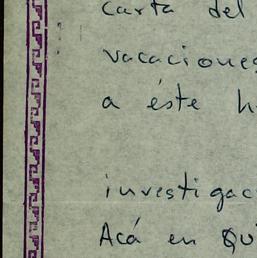 carta del
vacaciones
a éste h
investigac
Acá en Qu